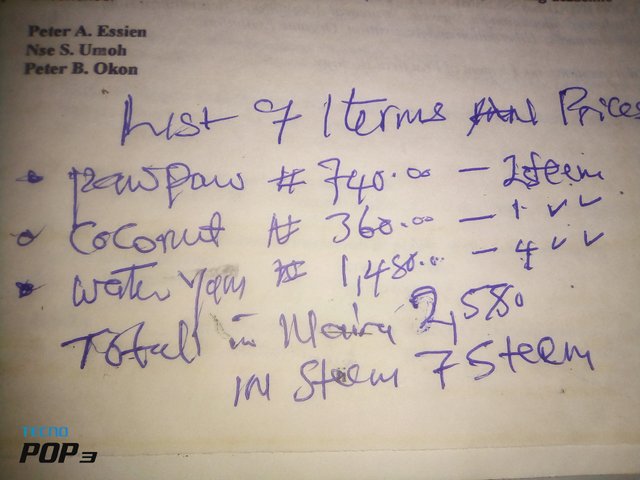 Peter A. Essien
Nse S. Umoh
Peter B. Okon
List of Iterms Prices
pawpaw # 740.00 — 2 steem
Coconut ₦ 360.00 — 1 ✓ ✓
Water yam ₦ 1,480.00 — 4 ✓ ✓
Total in Naira 2,580
IN Steem 7 Steem
TECNO
POP 3